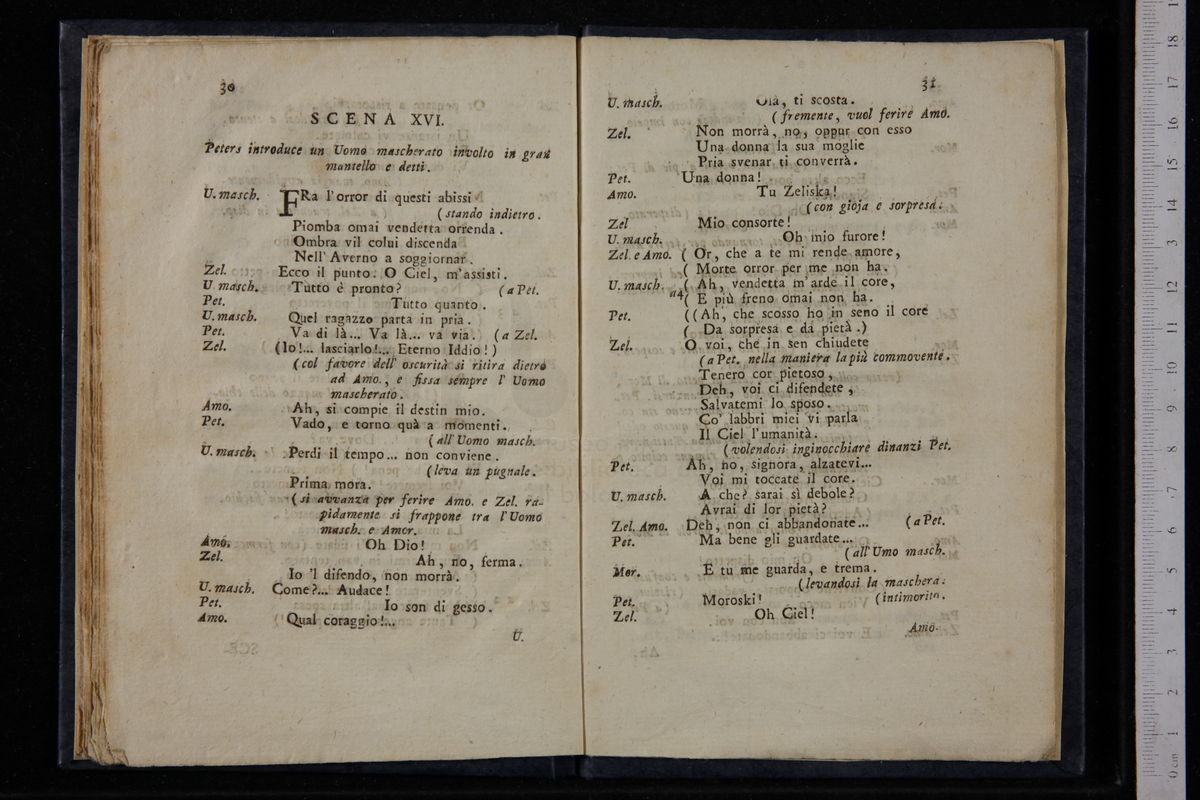 30
SCENA XVI.
Peters introduce un Uomo mascherato involto in gran
mantello e detti.
U. masch. FRa l'orror di questi abissi
(stando indietro.
Piomba omai vendetta orrenda.
Ombra vil colui discenda
Nell'Averno a soggiornar.
Zel. Ecco il punto. O Ciel, m'assisti.
U masch. Tutto è pronto? (a Pet.
Pet. Tutto quanto.
U. masch. Quel ragazzo parta in pria.
Pet. Va di là... Va là... va via. (a Zel.
Zel. (Io!... lasciarlo!... Eterno Iddio!)
(col favore dell' oscurità si ritira dietro
ad Amo., e fissa sempre l' Uomo
mascherato.
Amo. Ah, si compie il destin mio.
Pet. Vado, e torno quà a momenti.
(all'Uomo masch.
U. masch. Perdi il tempo... non conviene.
(leva un pugnale.
Prima mora.
(si avvanza per ferire Amo. e Zel. ra-
pidamente si frappone tra l'Uomo
masch. e Amor.
Amo. Oh Dio!
Zel. Ah, no, ferma.
Io 'l difendo, non morrà.
U. masch. Come?... Audace!
Pet. Io son di gesso.
Amo. Qual coraggio!...
U.
31
U. masch. Olà, ti scosta.
(fremente, vuol ferire Amo.
Zel. Non morrà, no, oppur con esso
Una donna la sua moglie
Pria svenar ti converrà.
Pet. Una donna!
Amo. Tu Zeliska!
(con gioja e sorpresa.
Zel Mio consorte!
U. masch. Oh mio furore!
Zel. e Amo. ( Or, che a te mi rende amore,
( Morte orror per me non ha.
U. masch. a4 ( Ah, vendetta m'arde il core,
( E più freno omai non ha.
Pet. ((Ah, che scosso ho in seno il core
( Da sorpresa e da pietà.)
Zel. O voi, che in sen chiudete
(a Pet. nella maniera la più commovente.
Tenero cor pietoso,
Deh, voi ci difendete,
Salvatemi lo sposo.
Co' labbri miei vi parla
Il Ciel l'umanità.
(volendosi inginocchiare dinanzi Pet.
Pet. Ah, no, signora, alzatevi...
Voi mi toccate il core.
U. masch. A che? sarai sì debole?
Avrai di lor pietà?
Zel. Amo. Deh, non ci abbandonate... (a Pet.
Pet. Ma bene gli guardate...
(all'Umo masch.
Mor. E tu me guarda, e trema.
(levandosi la maschera.
Pet. Moroski! (intimorito.
Zel. Oh Ciel!
Amo.